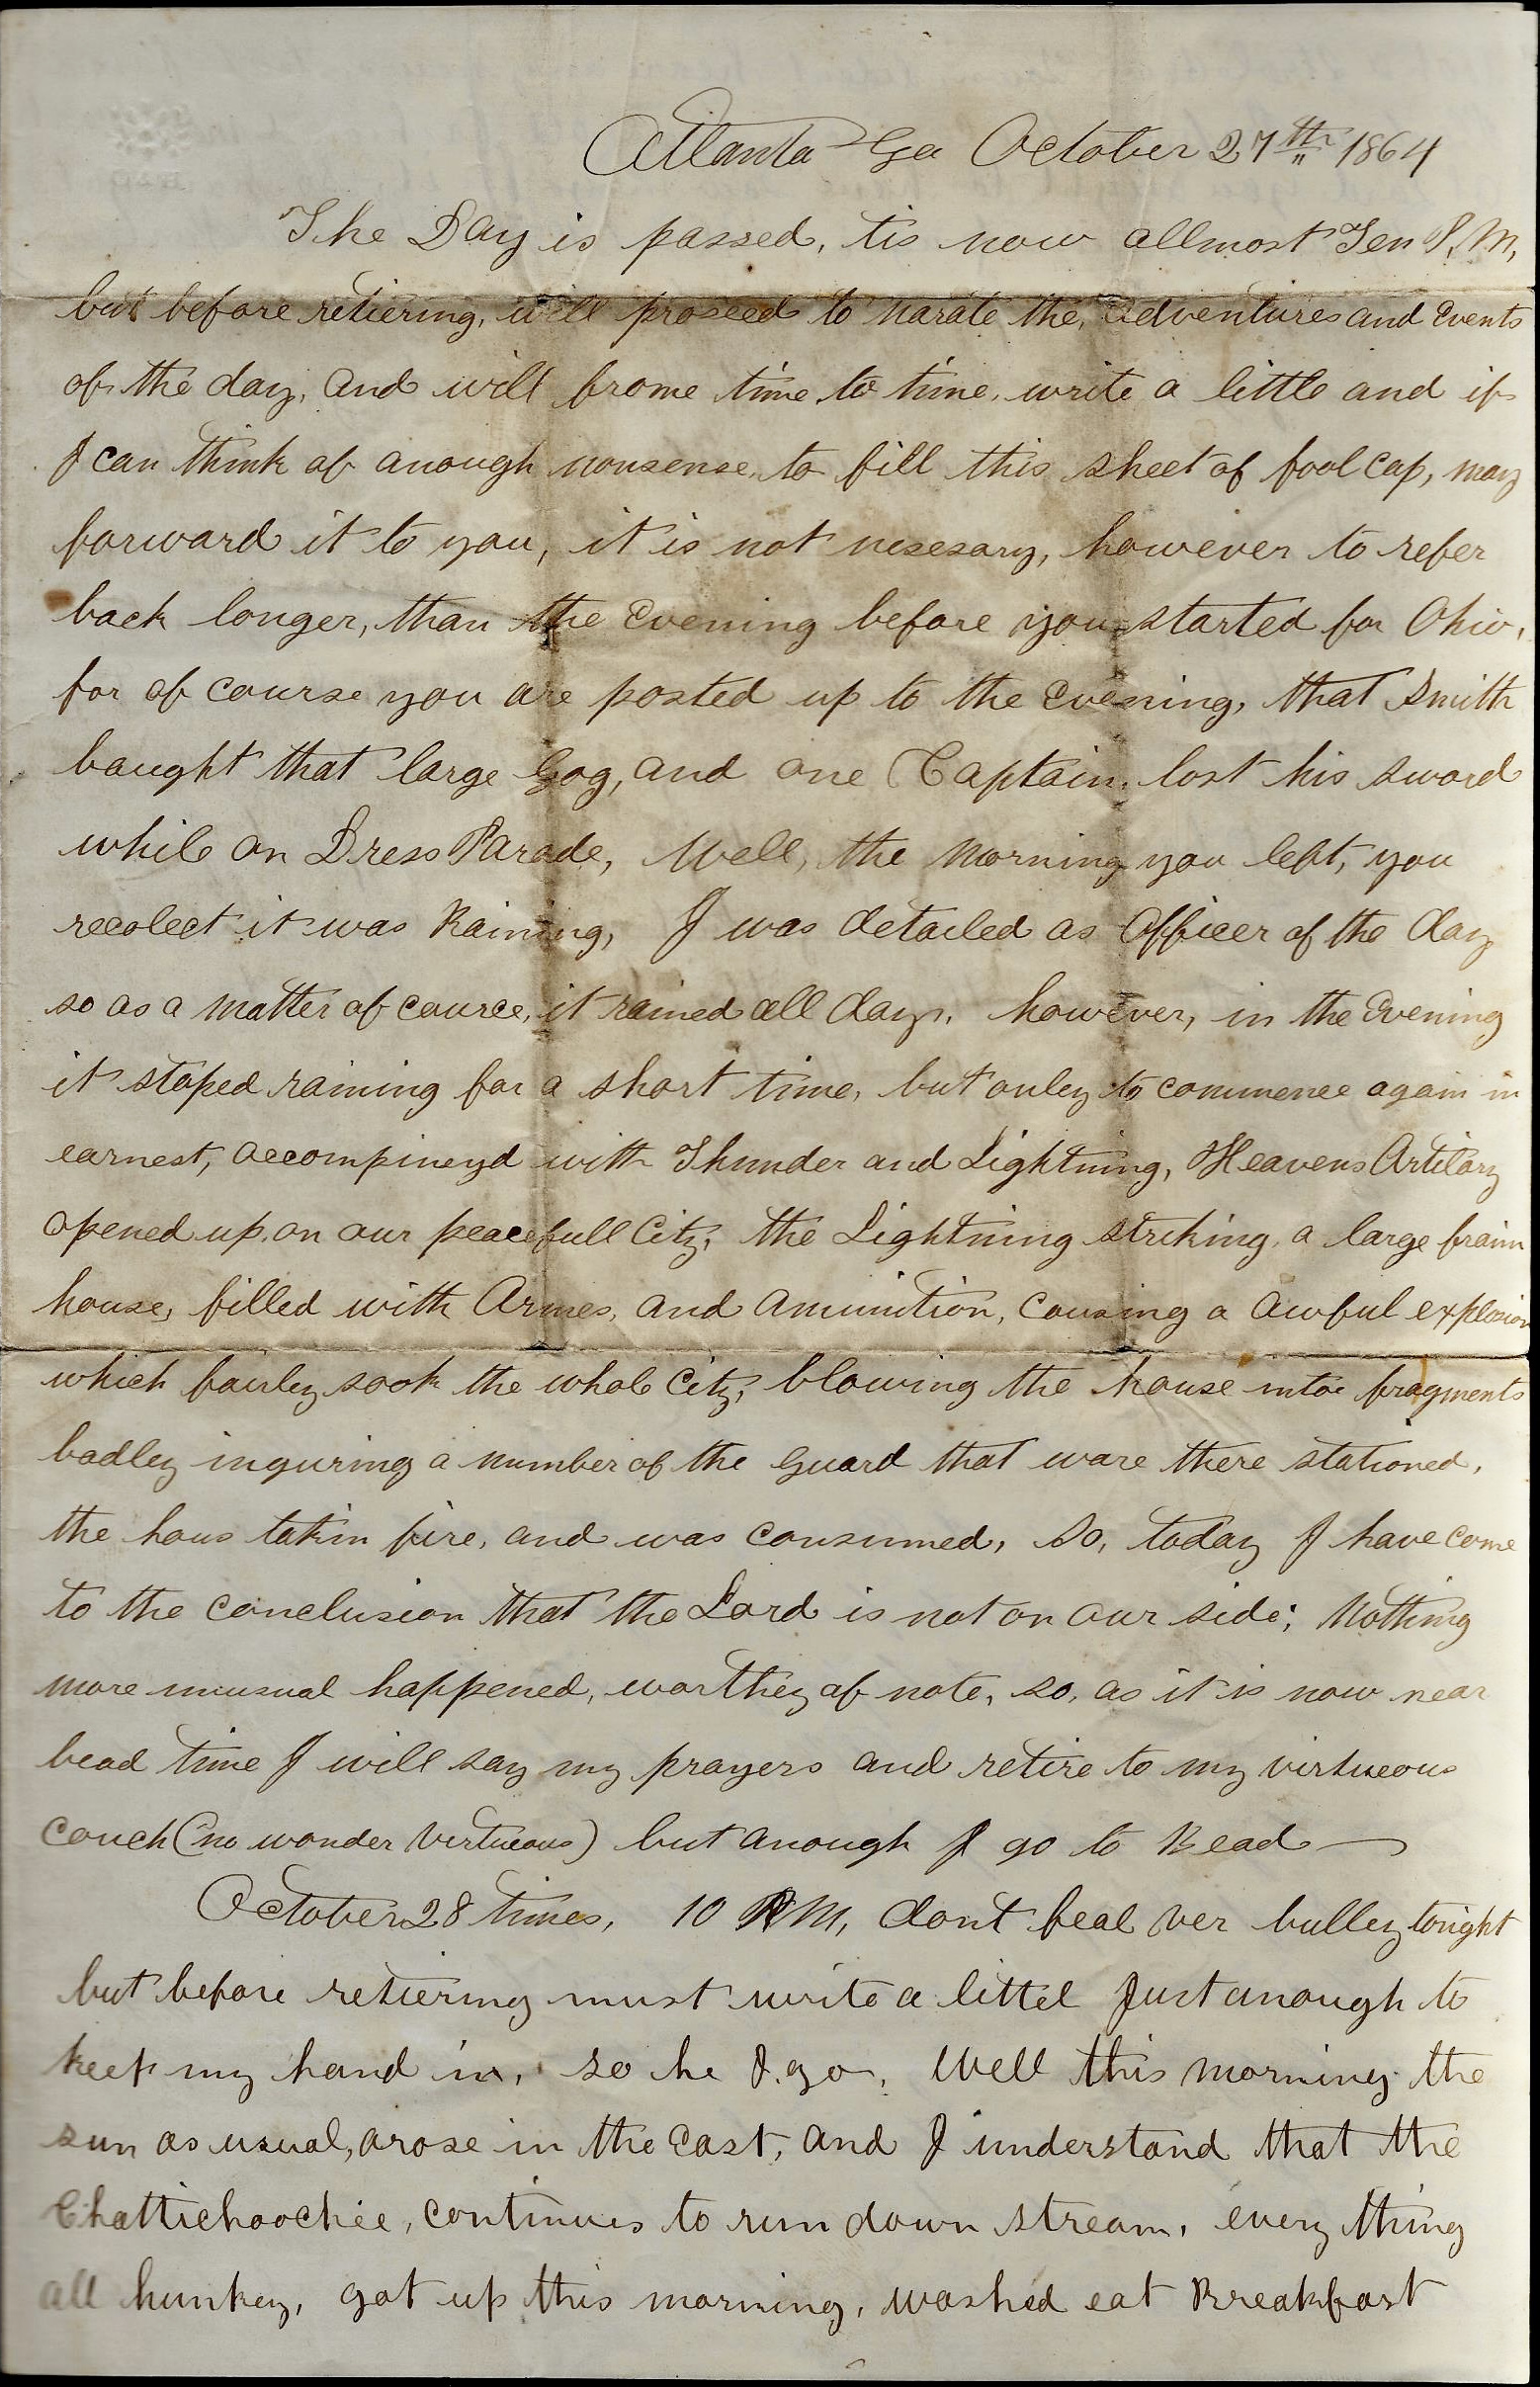 Atlanta Ga October 27th 1864
The Day is passed, tis now allmost Ten P.M,
but before retiering, will proseed to narate the, adventures and Events
of the day, and will frome time to time, write a little and if
I can think of anough nonsense, to fill this sheet of fool cap, may
forward it to you, it is not nesesary, however to refer
back longer, than the Evening before you started for Ohio,
for of course you are posted up to the Evening, that Smith
baught that large Hog, and one Captain, lost his sword
while on Dress Parade, Well, the Morning you left, you
recolect it was Raining, I was detailed as Officer of the day
so as a matter of cource, it rained all day, however, in the Evening
it stoped raining for a short time, but onley to commence again in
earnest, accompineyd with Thunder and Lightning, Heavens Artilary
opened up, on our peacefull City, the Lightning striking, a large fraim
house, filled with Armes, and Amunition, Causing a awful explosion
which fairley sook the whole City, blowing the house intoe fragments
badley inguring a number of the Guard that ware there stationed,
the hous takin fire, and was consumed, So, today I have come
to the conclusion that the Lord is not on our side; Nothing
more unusual happened, worthey of note, so, as it is now near
bead time I will say my prayers and retire to my virtueous
couch (no wonder virtueous) but anough I go to Bead
October 28 times, 10 P.M, dont feal ver bulley tonight
but before retiering must write a littel Just anough to
keep my hand in, so he I go, Well this morning the
sun as usual, arose in the East, and I understand that the
Chattichoochee, continues to run down stream, every thing
all hunkey, got up this morning, washed eat Breakfast